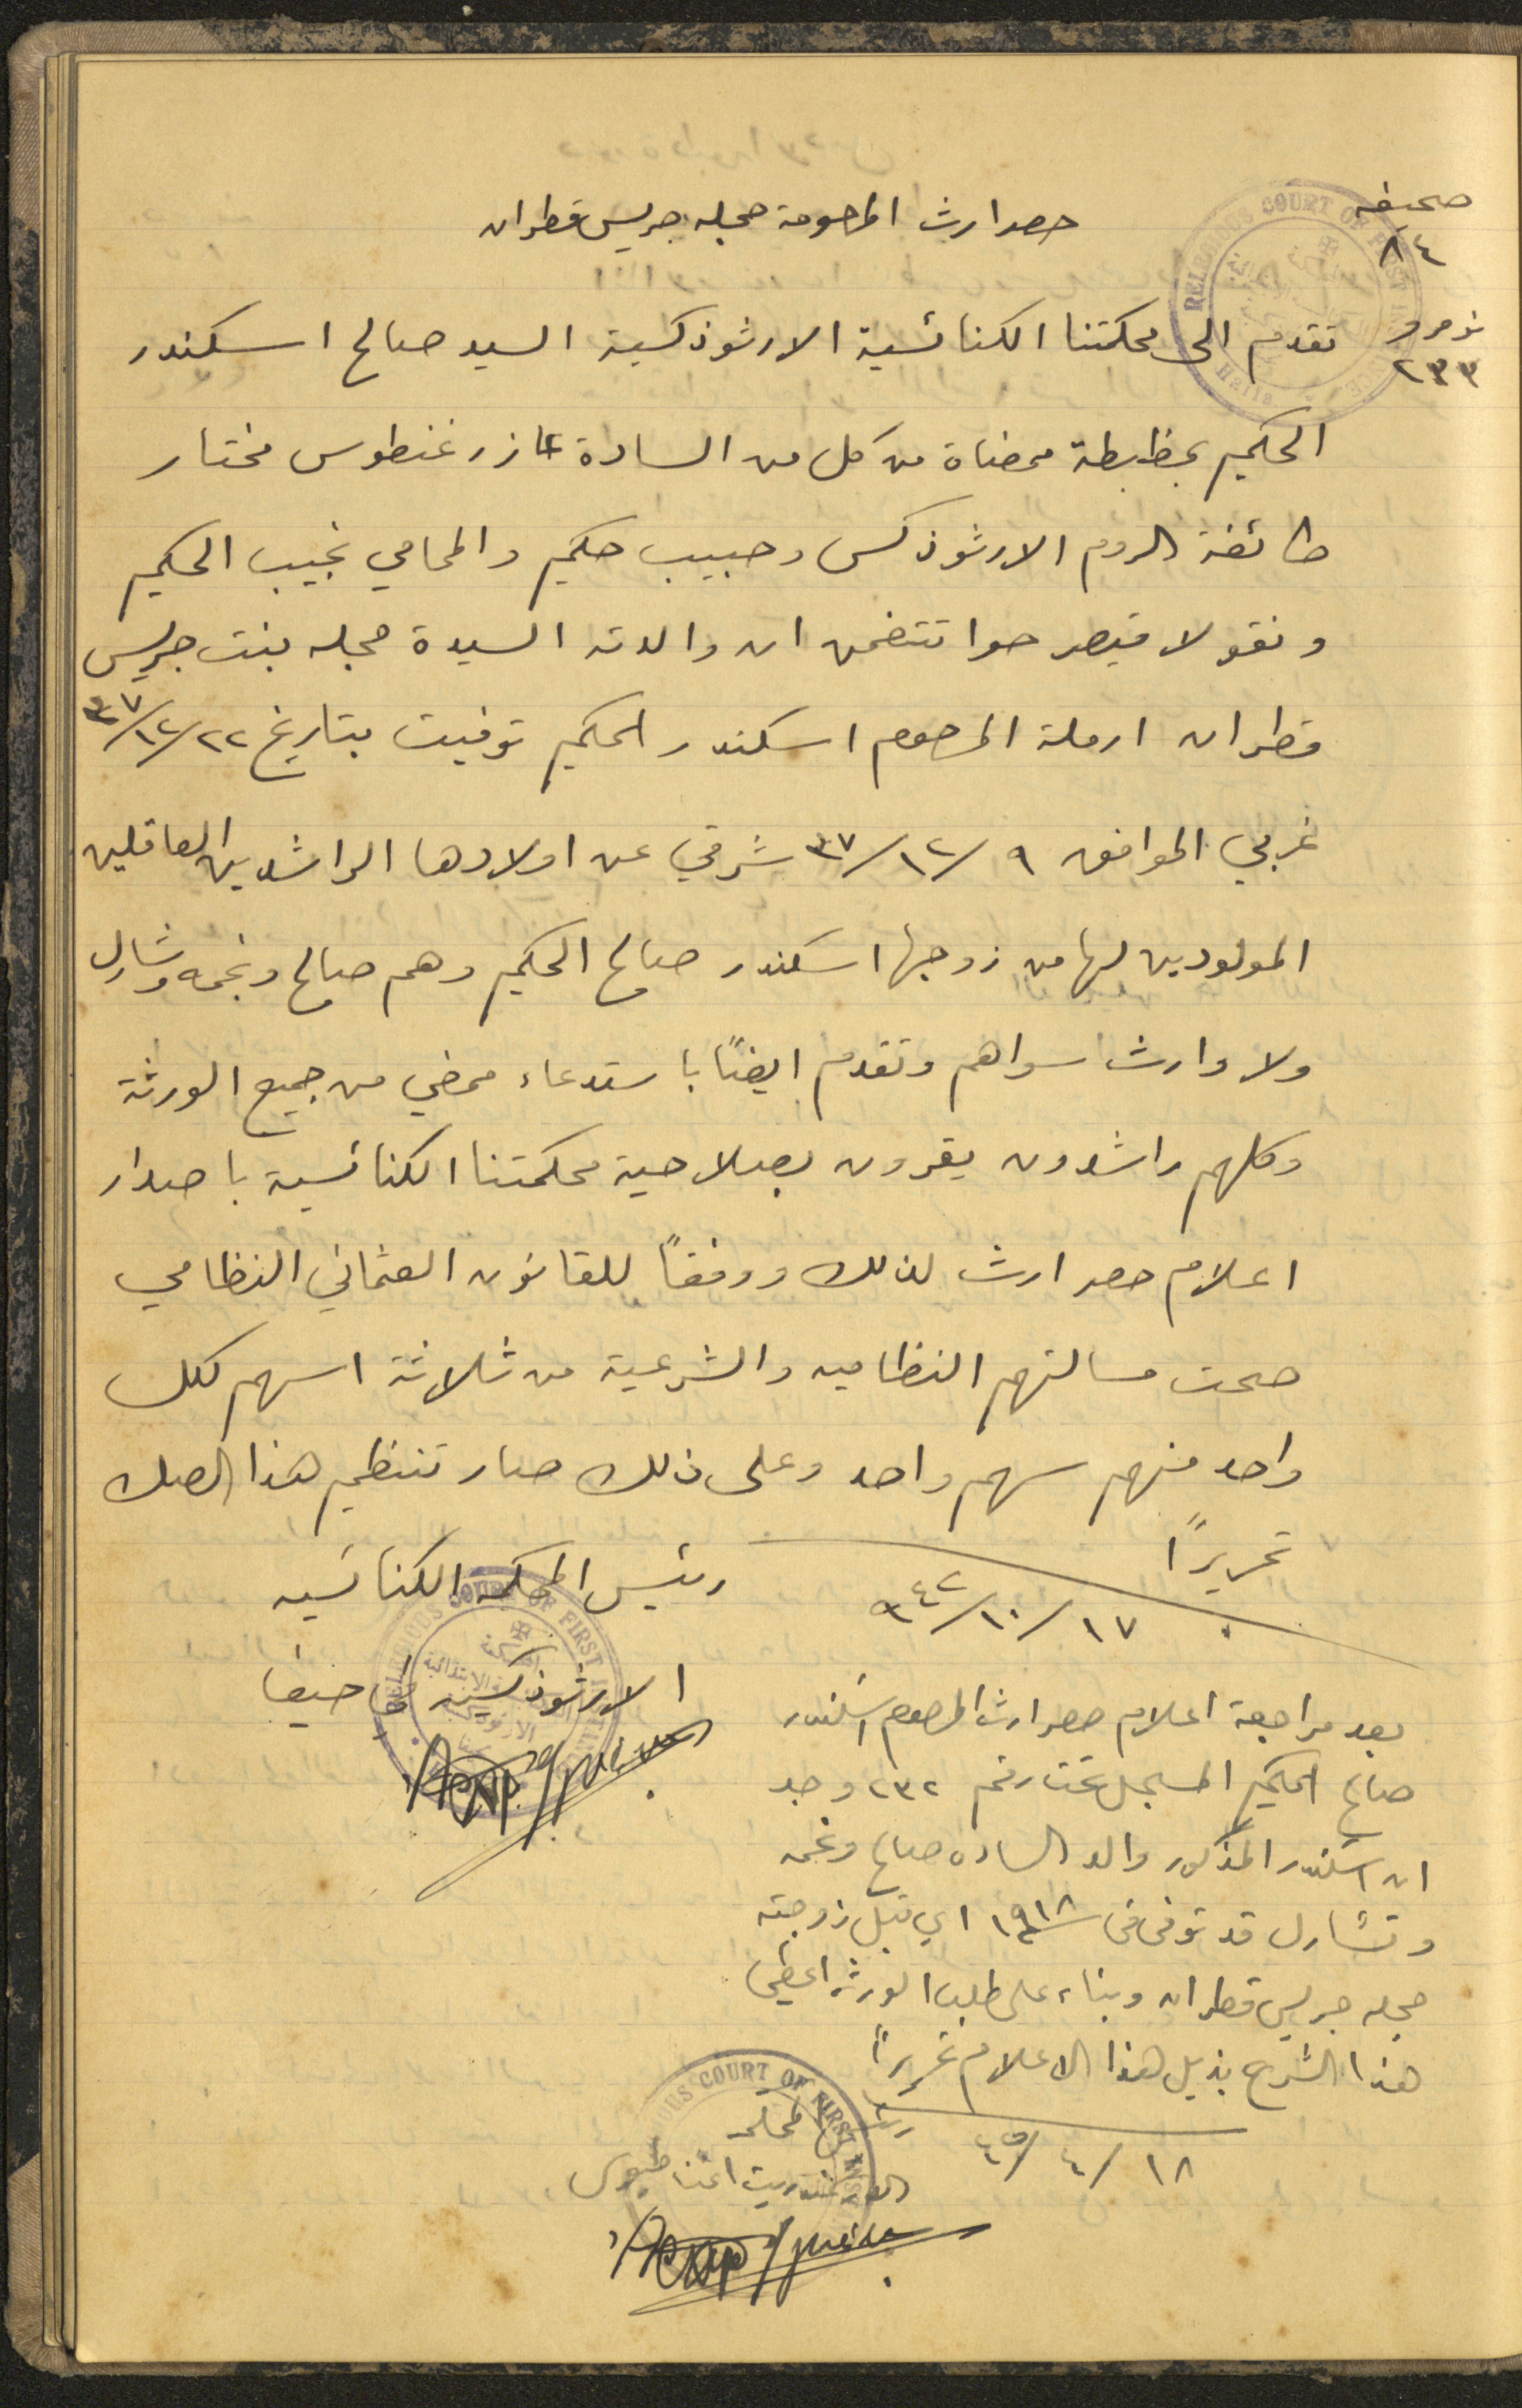 صحيفه
٨٤
حصر ارث المرحومة مجله جريس قطران
نومرو
٢٣٣
تقدم الى محكمتنا الكنائسية الارثوذكسية السيد صالح اسكندر
الحكيم بمظبطة ممضاة من كل من السادة عازر غنطوس مختار
طائفة الروم الارثوذكس وحبيب حكيم والمحامي نجيب الحكيم
ونقولا قيصر حوا تتضمن ان والدته السيدة مجله بنت جريس
قطران ارملة المرحوم اسكندر الحكيم توفيت بتاريخ ٢٢/١٢/٣٧
غربي الموافق ٩/١٢/٣٧ شرقي عن اولادها الراشدين العاقلين
المولودين لها من زوجها اسكندر صالح الحكيم وهم صالح ونجمه وشارل
ولا وارث سواهم وتقدم ايضاً باستدعاء ممضي من جميع الورثة
وكلهم راشدون يقرون بصلاحية محكمتنا الكنائسية باصدار
اعلام حصر ارث لذلك ووفقاً للقانون العثماني النظامي
صحت مسالتهم النظاميه والشرعية من ثلاثة اسهم لكل
واحد منهم سهم واحد وعلى ذلك صار تنظيم هذا الصك
تحريراً
١٧/١٠/٩٤٢
رئيس المحكمه الكنائسيه
الارثوذكسيه في حيفا
بعد مراجعة اعلام حصر ارث المرحوم اسكندر
صالح الحكيم المسجل تحت رقم ٢٣٢ وجد
ان اسكندر المذكور والد الساده صالح ونجمه
وتشارل قد توفى في سنة ١٩١٨ اي قبل زوجته
مجله جريس قطران وبناء على طلب الورثه اعطي
هذا الشرح بذيل هذا الاعلام تحريراً
١٨/٤/٤٥
رئيس المحكمه
RELIGIOUS COURT OF FIRST INSTANCE
Haifa
RELIGIOUS COURT OF FIRST INSTANCE
RELIGIOUS COURT OF FIRST INST